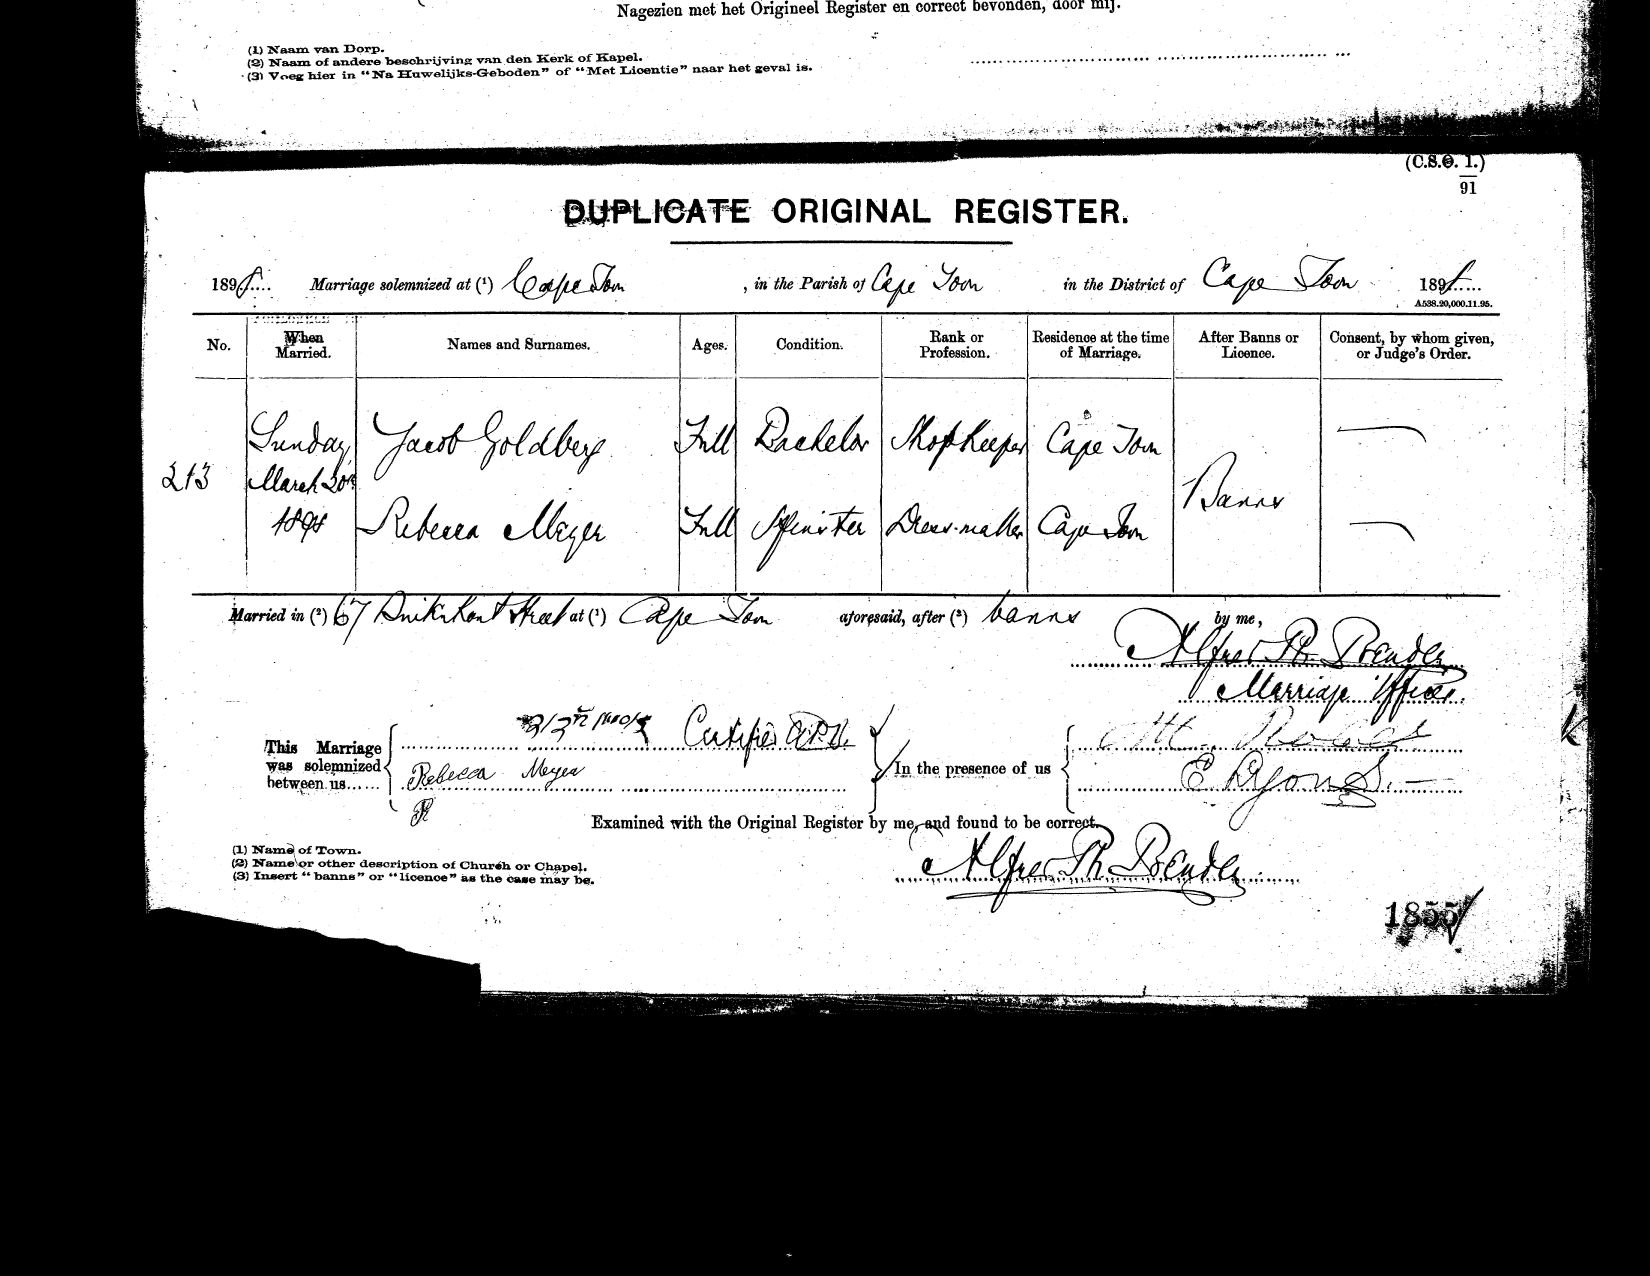 Nagezien met het Origineel Register en correct bevonden, door mij.
(1) Naam van Dorp.
(2) Naam of andere beschrijving van den Kerk of Kapel.
(3) Voeg hier in “Na Huwelijks-Geboden” of “Met Licentie” naar het geval is.
(C.S.O. I.)
91
DUPLICATE ORIGINAL REGISTER.
1898 Marriage solemnized at (¹) Cape Town, in the Parish of Cape Town in the District of Cape Town 1898
A538.20,000.11.95.
No. When Married. Names and Surnames. Ages. Condition. Rank or Profession. Residence at the time of Marriage. After Banns or Licence. Consent, by whom given, or Judge's Order.
213 Sunday March 20th 1898
Jacob Goldberg Full Bachelor Shopkeeper Cape Town
Banns
Rebecca Meyer Full Spinster Dress-maker Cape Town
Married in (²) 67 Street at (¹) Cape Town aforesaid, after (³) banns by me,
Alfred Ph. Bender
Marriage Officer.
This Marriage was solemnized between us
Certified A.P.B.
Rebecca Meyer
In the presence of us
E Lyons.
Examined with the Original Register by me, and found to be correct.
Alfred Ph. Bender
(1) Name of Town.
(2) Name or other description of Church or Chapel.
(3) Insert “banns” or “licence” as the case may be.
1855